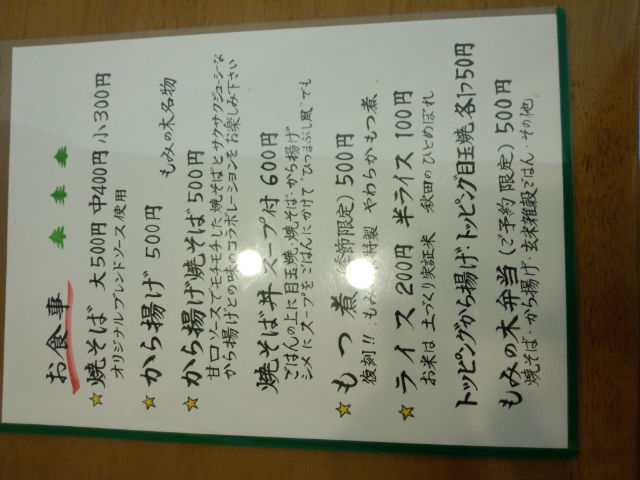 お食事
焼そば 大500円 中400円 小300円
オリジナルブレンドソース使用
から揚げ 500円 もみの木名物
から揚げ焼そば 500円
甘口ソースでモチモチした焼そばとサクサクジューシーな
から揚げとの味のコラボレーションをお楽しみ下さい
焼そば丼 スープ付 600円
ごはんの上に目玉焼・焼そば・から揚げ
シメにスープをごはんにかけて"ひつまぶし風"でも
もつ煮 (季節限定) 500円
復刻!! もみの木特製 やわらかもつ煮
ライス 200円 半ライス 100円
お米は土づくり実証米 秋田のひとめぼれ
トッピングから揚げ・トッピング目玉焼 各1つ50円
もみの木弁当 (ご予約限定) 500円
焼そば・から揚げ・玄米雑穀ごはん・その他